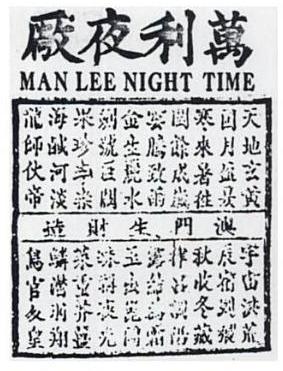 萬利夜厰
MAN LEE NIGHT TIME
天地玄黃
日月盈昃
寒來暑往
閏餘成歲
雲騰致雨
金生麗水
劍號巨闕
菓珍李柰
海鹹河淡
龍師伏帝
澳門生財造
宇宙洪荒
辰宿列張
秋收冬藏
律呂調陽
露結為霜
玉出崑岡
珠稱夜光
菜重芥薑
鱗潛羽翔
鳥官人皇